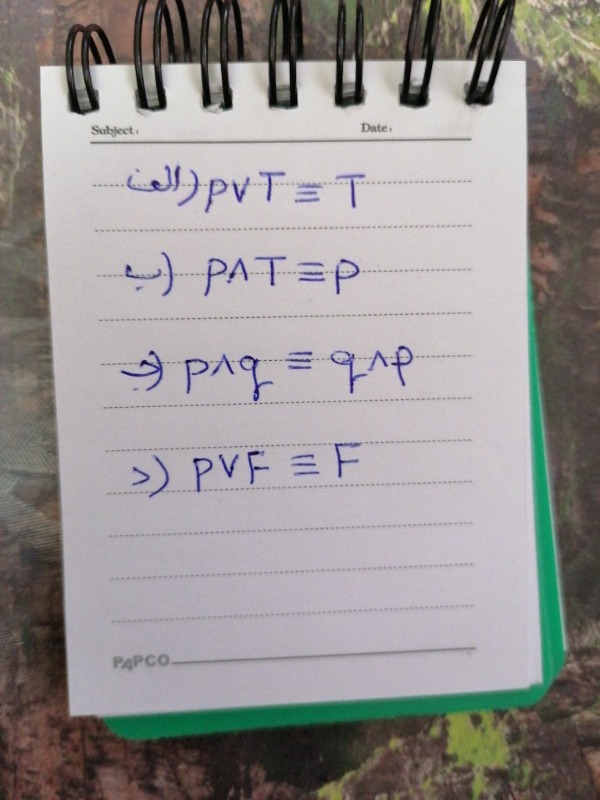 Subject: Date:
الف) P∨T ≡ T
ب) P∧T ≡ P
ج) p∧q ≡ q∧p
د) P∨F ≡ F
PAPCO